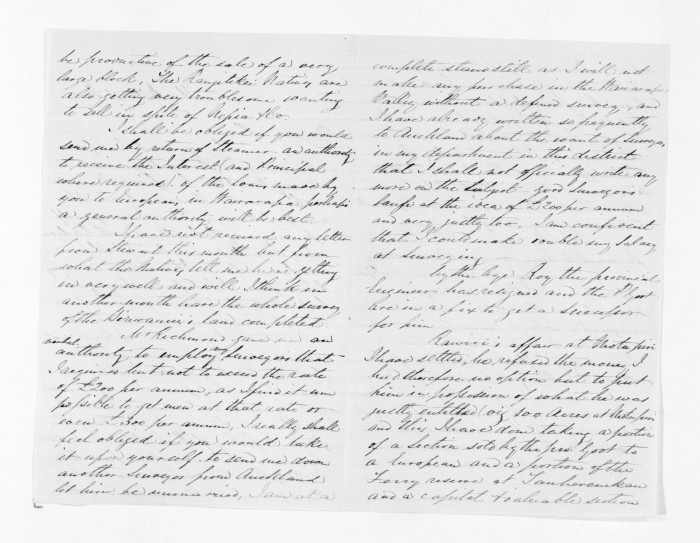 be productive of the sale of a very
large block, The Rangitikei Natives are
also getting very troublesome wanting
to sell in spite of Hapia &Co.
I shall be obliged if you would
send me by return of Steamer an authority
to receive the Interest (and Principal
where required) of the loans made by
you to Europeans, in Wairarapa, perhaps
a general authority will be best.
I have not received any letter
from Stewart this month but from
what the Natives tell me he is getting
on very well and will I think in
another month have the whole survey
of the land completed.
Mr Richmond gave me an
authority to employ any Surveyors that
I required but not to exceed the rate
of £200 per annum, as I find it im
possible to get men at that rate or
even £300 per annum, I really shall
feel obliged if you would take
it upon yourself to send me down
another Surveyor from Auckland
let him be unmarried, I am at a
complete standstill as I will not
make any purchase in the Wairarapa
Valley without a defined survey, and
I have already written so frequently
to Auckland about the want of Surveyors
in my department in this district
that I shall not officially write any
more on the subject - good surveyors
laugh at the idea of £200 per annum
and very justly too. I am confident
that I could make double my Salary
at surveying.
by the bye Roy the provincial
Engineer has resigned and the P. Govt
are in a fix to get a successor
for him
Rawiri's affair at
I have settled, he refused the money, I
had therefore no option but to put
him in possession of what he was
justly entitled (viz 300 Acres at
and this I have done taking a portion
of a section sold by the pro: Govt to
a European and a portion of the
Ferry reserve at
and a capital & valuable section